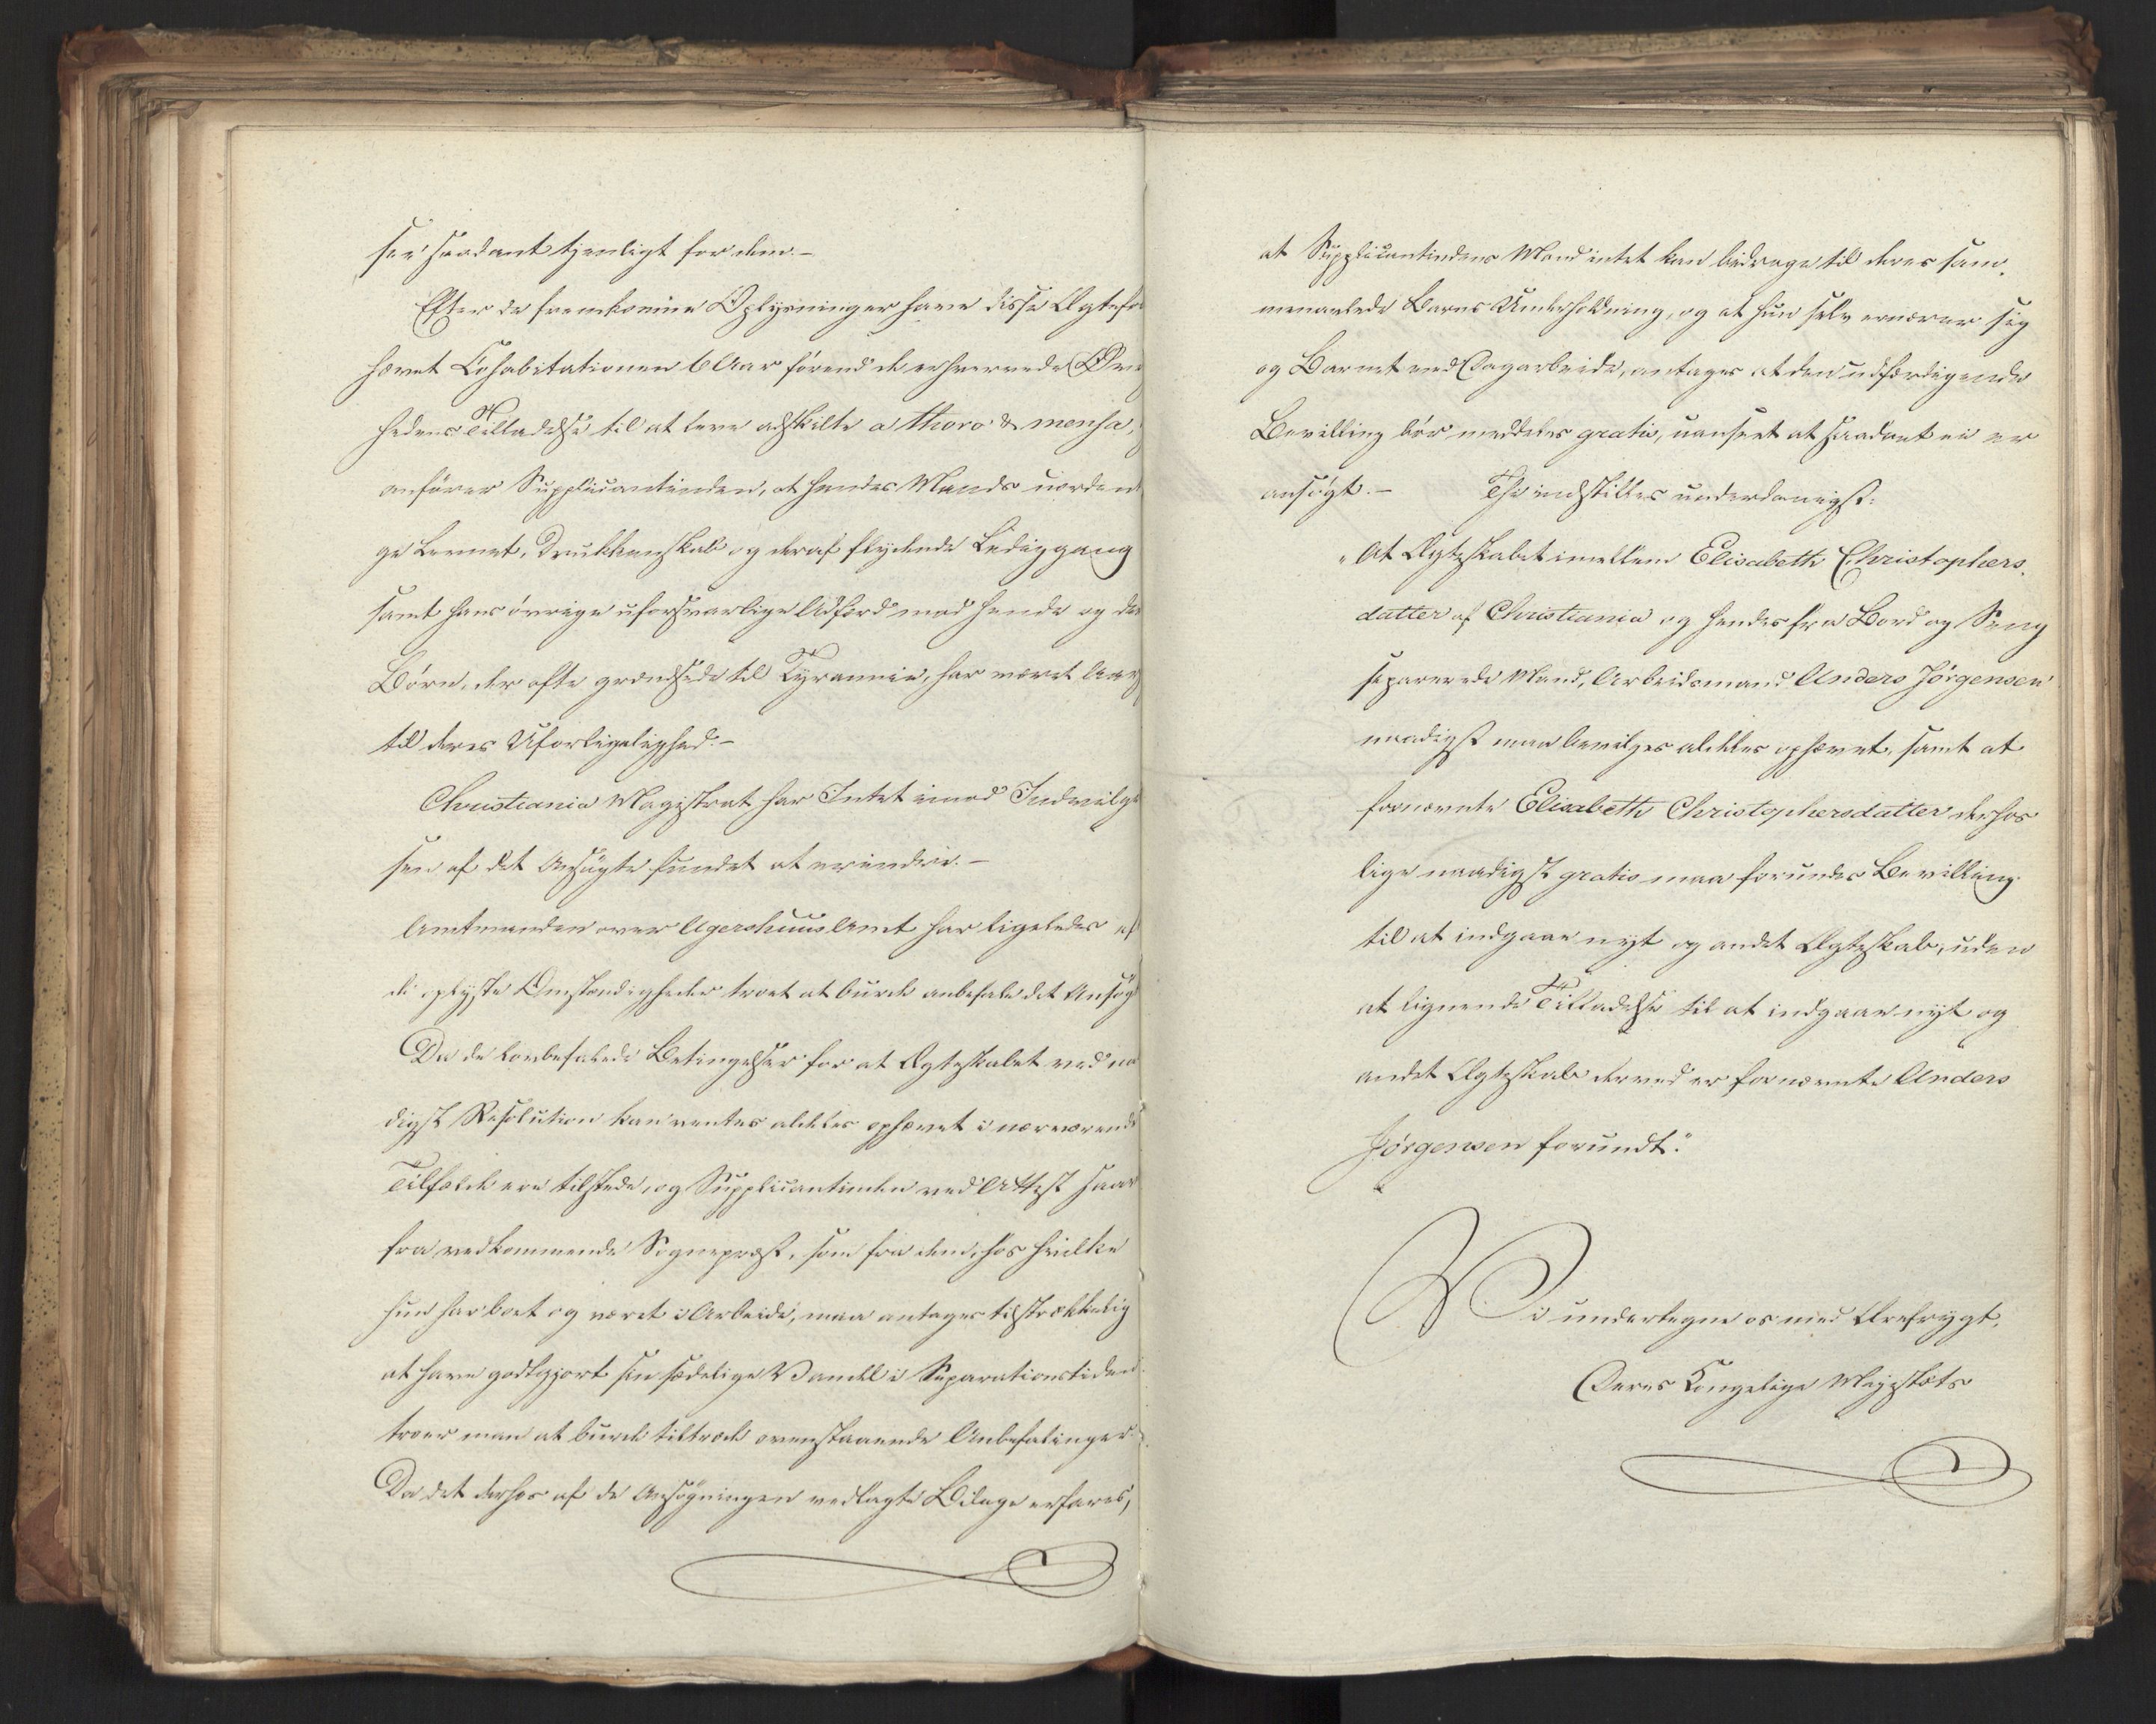 see saadant tjenligt for dem.-
Efter de fremkomne Oplysninger have disse Ægtefo
hævet Cohabitationen 6 Aar förend de erhvervede Øv
hedens Tilladelse til at leve adskilte a thoro & mensa,
anförer Supplicantinden, at hendes Mands uorden
ge Levnet, Drukkenskab og deraf flydende Lediggang
samt hans övrige uforsvarlige Adfærd mod hende og de
Börn, der ofte grændsede til Tyrannie, har været Aar
til deres Uforligelighed.-
Christiania Magistrat har Intet imod Indvilge
sen af det Ansögte fundet at erindre.-
Amtmanden over Agershuus Amt har ligeledes ef
de oplyste Omstændigheder troet at burde anbefale det Ansög
Da de lovbefalede Betingelser for at Ægteskabet ved na
digst Resolution kan ventes aldeles ophævet i nærværende
Tilfælde ere tilstede, og Supplicantinden ved Attest saav
fra vedkommende Sognepræst, som fra dem, hos hvilke
hun har boet og været i Arbeide, maa antages tilstrækkelig
at have godtgjort sin sædelige Vandel i Separationstiden
troer man at burde tiltræde ovenstaaende Anbefalinger.
Da det derhos af de Ansögningen vedlagte Bilage erfares,
at Supplicantindens Mand intet kan bidrage til deres sam-
menavlede Barns Underholdning, og at hun selv ernærer sig
og Barnet ved Dagarbeide, antages at den udfærdigende
Bevilling bör meddeles gratis, uanseet at saadant ei er
ansögt.- Thi indstilles underdanigst:
"At Ægteskabet imellem Elisabeth Christophers-
datter af Christiania og hendes fra Bord og Seng
separerede Mand, Arbeidsmand Anders Jörgensen
naadigst maa bevilges aldeles ophævet, samt at
fornævnte Elisabeth Christophersdatter derhos
lige naadigst gratis maa forundes Bevilling
til at indgaae nyt og andet Ægteskab, uden
at lignende Tilladelse til at indgaae nyt og
andet Ægteskab derved er fornævnte Anders
Jörgensen forundt."
Vi undertegne os med Ærefrygt,
Deres Kongelige Majestæts